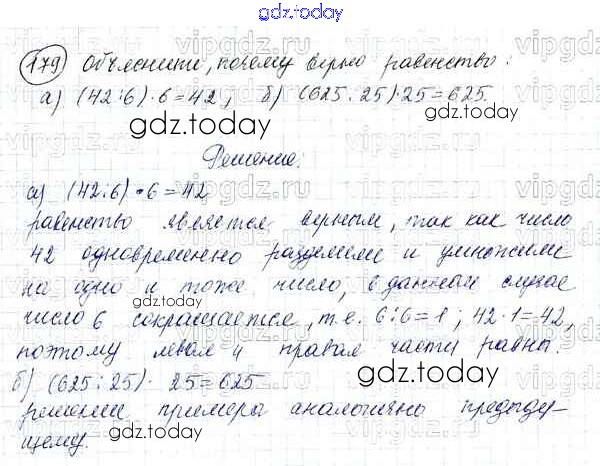 gdz.today
179 Объясните, почему верно равенство:
а) (42:6)·6=42, б) (625:25)·25=625.
gdz.today
Решение:
а) (42:6)·6=42
равенство является верным, так как число
42 одновременно разделили и умножили
на одно и тоже число, в данном случае
gdz.today
число 6 сокращается, т.е. 6:6=1; 42·1=42,
поэтому левая и правая части равны.
gdz.today
б) (625:25)·25=625
решение примера аналогично предыду-
щему.
gdz.today